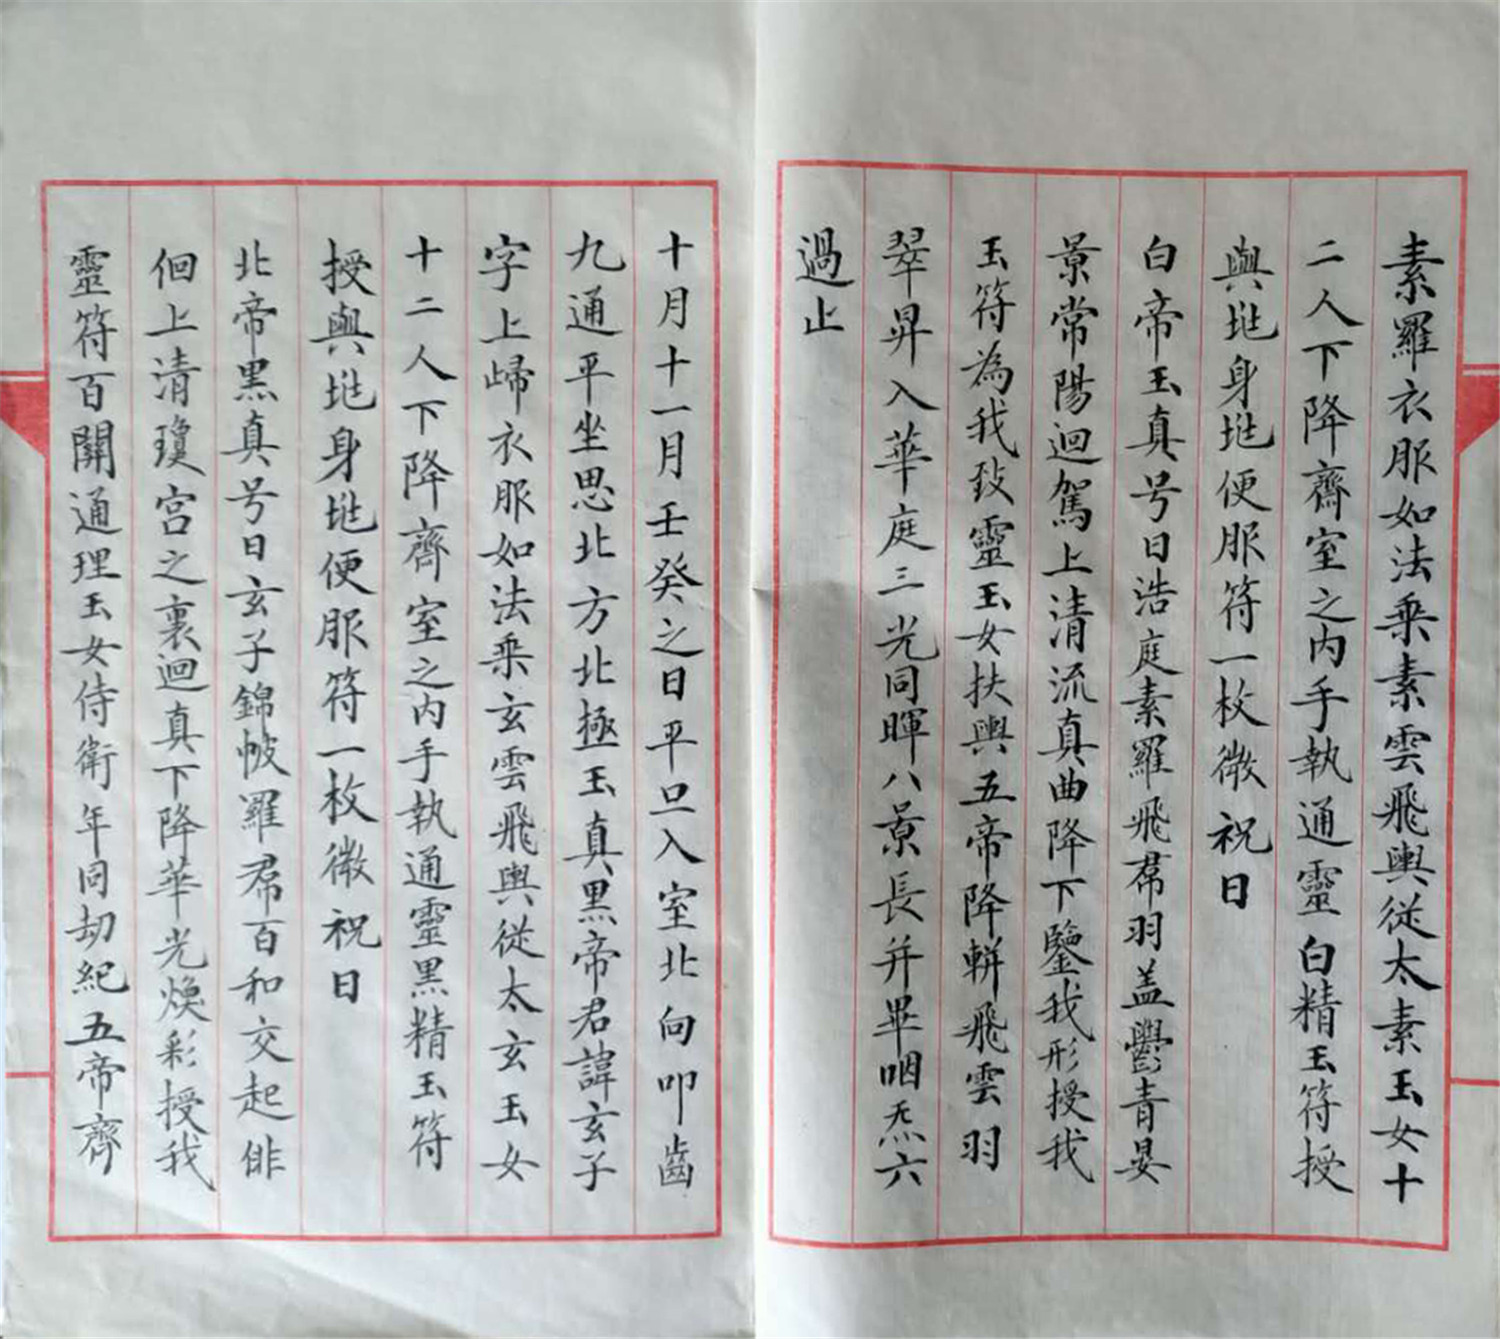 素羅衣服如法乘素雲飛輿從太素玉女十
二人下降齊室之內手執通靈白精玉符授
與𡉏身𡉏便服符一枚微祝曰
白帝玉真号曰浩庭素羅飛帬羽盖鬱青晏
景常陽迴駕上清流真曲降下鑒我形授我
玉符為我致靈玉女扶輿五帝降軿飛雲羽
翠昇入華庭三光同暉八景長并畢咽炁六
過止
十月十一月壬癸之日平旦入室北向叩齒
九通平坐思北方北極玉真黑帝君諱玄子
字上歸衣服如法乘玄雲飛輿從太玄玉女
十二人下降齊室之內手執通靈黑精玉符
授與𡉏身𡉏便服符一枚微祝曰
北帝黑真号曰玄子錦帔羅帬百和交起俳
佪上清瓊宮之裏迴真下降華光煥彩授我
靈符百關通理玉女侍衛年同劫紀五帝齊